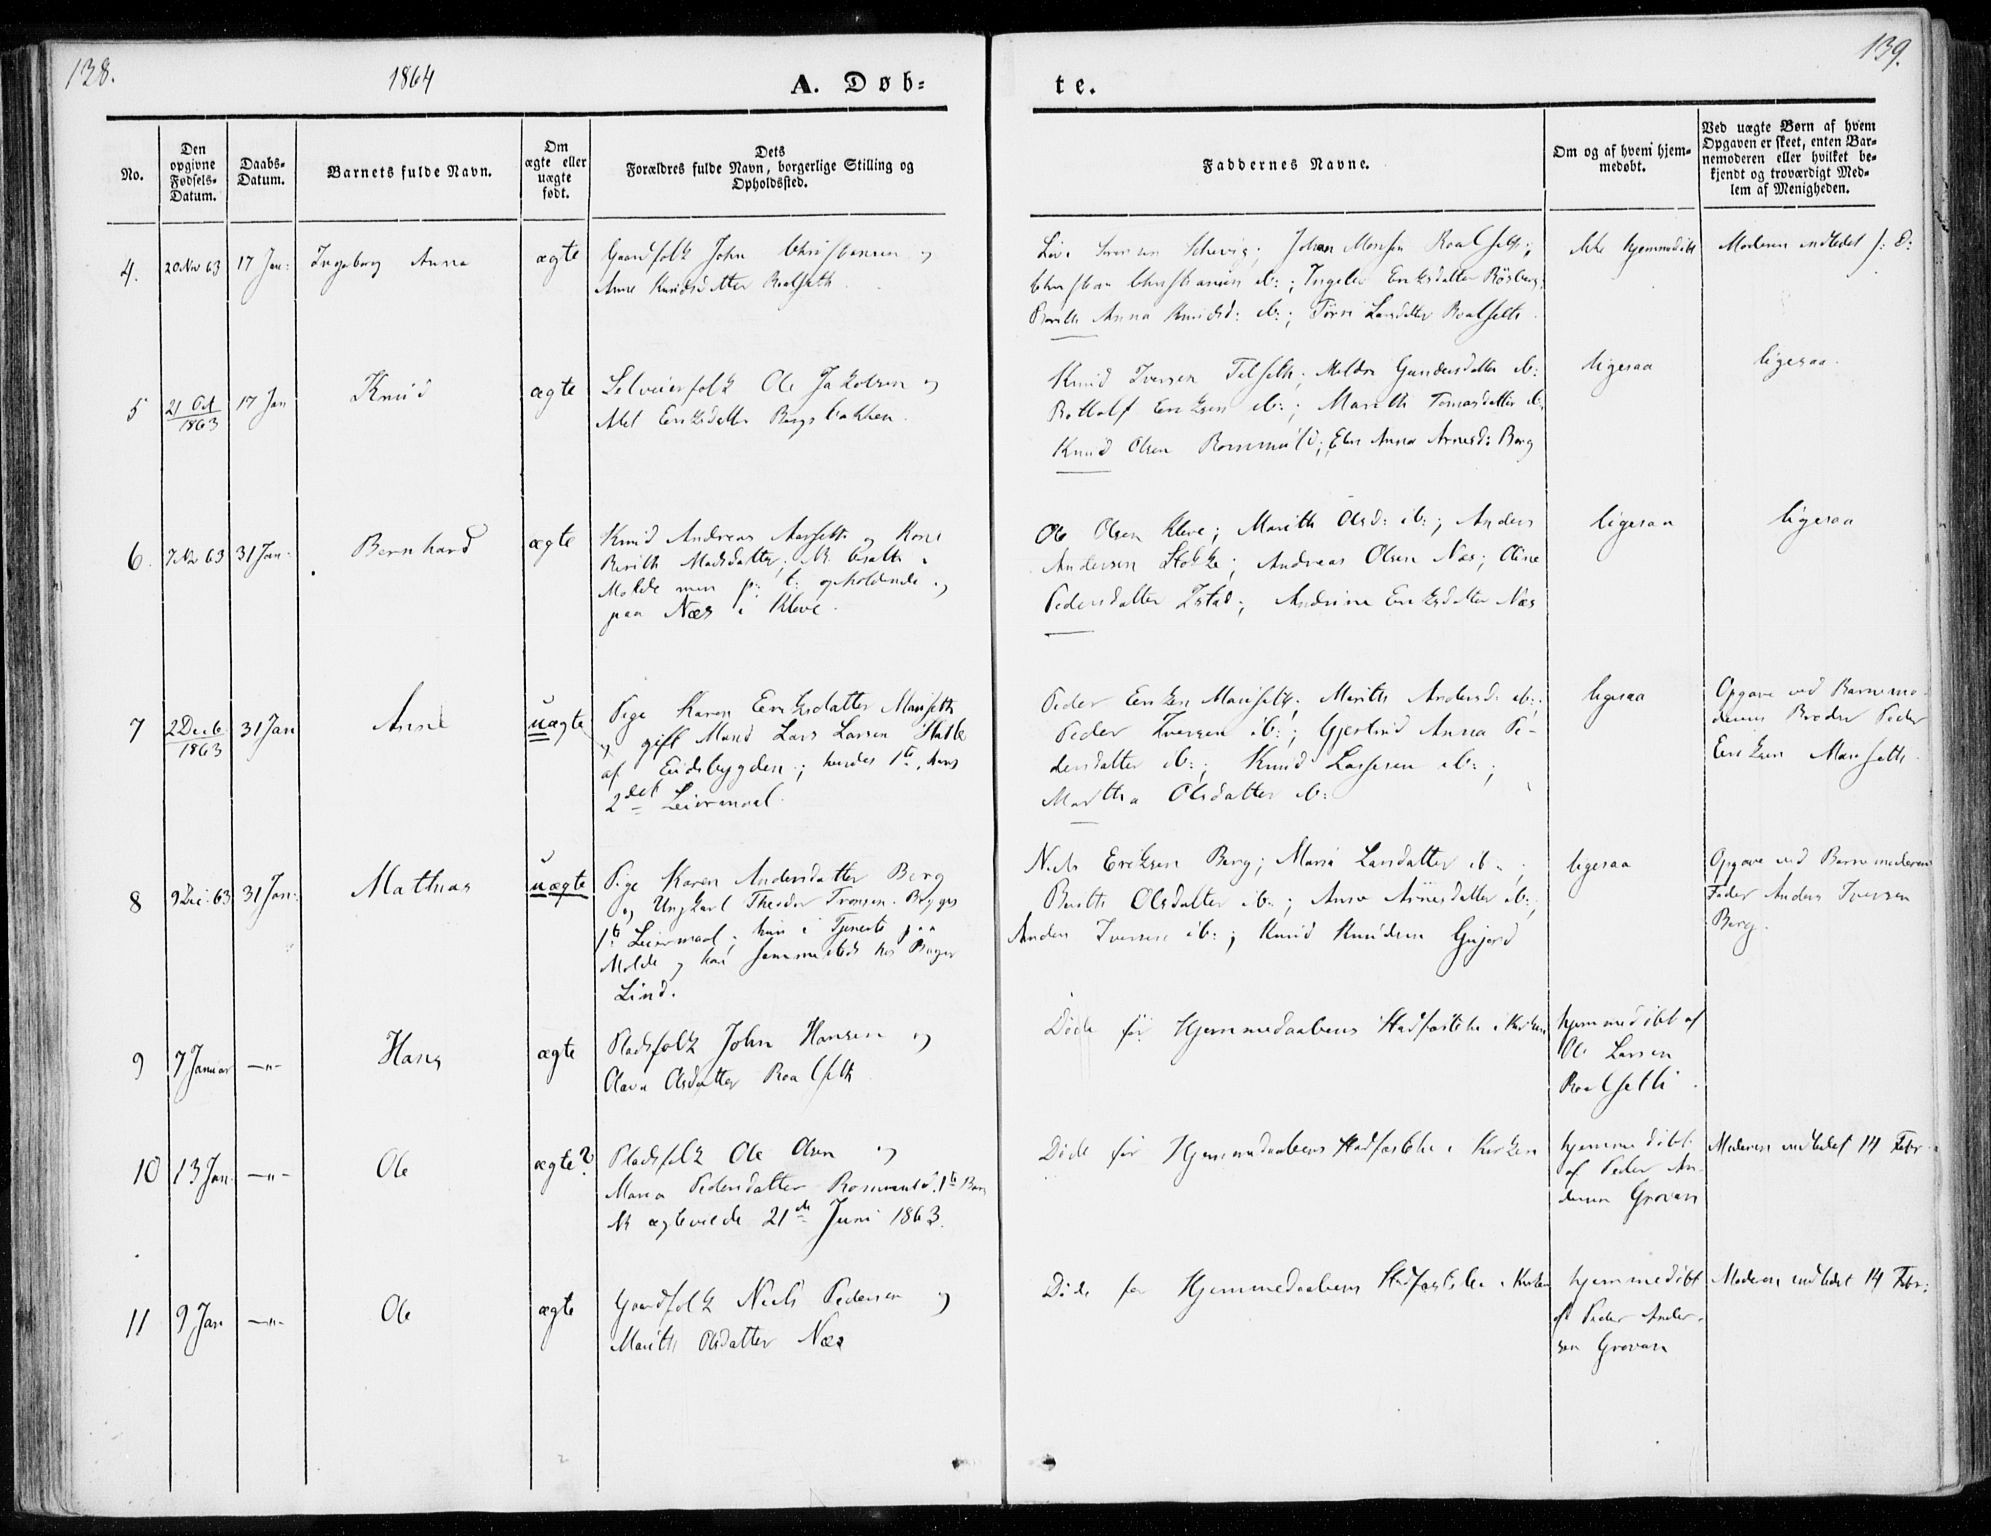 138.
1864
A. Døb-
te.
139.
No.
Den
opgivne
Fødsels-
Datum.
Daabs-
Datum.
Barnets fulde Navn.
Om
ægte eller
uægte
født.
Dets
Forældres fulde Navn, borgerlige Stilling og
Opholdssted.
Faddernes Navne.
Om og af hvem hjem-
medøbt.
Ved uægte Børn af hvem
Opgaven er skeet, enten Bar-
nemoderen eller hvilket be-
kjendt og troværdigt Med-
lem af Menigheden.
4.
20 Nov 63
17 Jan:
Ingeborg Anna
ægte
Gaardfolk John Christiansen og
Anne Knudsdatter Roalseth.
Johan Monsen Roalseth;
Christian Christiansen ib:; Ingeb Eriksdatter Røsberg;
Berith Anna Knudsd: ib:; Larsdatter Roalseth.
ikke hjemmedøbt
Moderen indledet s: D:
5
21 Oct
1863
17 Jan
Knud
ægte
Selveierfolk Ole Jakobsen og
Eriksdatter Bergsbakken.
Knud Iversen Gundersdatter ib:
Eriksen ib:; Marith Tomasdatter ib:
Knud Olsen Anna Arnesd: Berg
ligesaa
ligesaa.
6.
31 Jan.
Bernhard
ægte
Knud Andreas Aarseth og Kone
Berith Madsdatter,
Molde men p: t: opholdende
paa Næs i Kleve.
Ole Olsen Kleve; Marith Olsd: ib:; Anders
Andersen Stokke; Andreas Olsen Næs; Oline
Pedersdatter Istad; Andrine Eriksdatter Næs
ligesaa
ligesaa
7
2 Decb
1863
31 Jan
Anne
uægte
Pige Karen Eriksdatter Manseth
og gift Mand Lars Larsen
af Eidsbygden; hendes 1te, hans
2det Leiermaal.
Peder Eriksen Manseth; Marith Andersd: ib:;
Peder Iversen ib:; Gjertrud Anna Pe-
dersdatter ib:; Knud Lassesen ib:;
Martha Olsdatter ib:
ligesaa
Opgave ved Barnemo-
derens Broder Peder
Eriksen Manseth.
8
9 Dec: 63
31 Jan:
Mathias
uægte
Pige Karen Andersdatter Berg
og Ungkarl Theodor Tronsen
1te Leiermaal; hun i Tjeneste paa
Molde og han sammesteds hos Bager
Lind.
Niels Eriksen Berg; Maria Larsdatter ib:;
Berith Olsdatter ib:; Anne Arnesdatter ib:;
Anders Iversen ib:; Knud Knudsen Gujord
ligesaa
Opgave ved Barnemoderens
Fader Anders Iversen
Berg.
9
7 Januar
—"—
Hans
ægte
Pladsfolk John Hansen og
Olava Olsdatter Roalseth
Døde før Hjemmedaabens Stadfæstelse i Kirken
hjemmedøbt af
Ole Larsen
Roalseth
10
13 Jan.
—"—
Ole
ægte?
Pladsfolk Ole Olsen og
Maria Pedersdatter 1te Barn
ægteviede 21de Juni 1863.
Døde før Hjemmedaabens Stadfæstelse i Kirken
hjemmedøbt
af Peder An-
dersen Grovan
Moderen indledet 14 Febr
11
9 Jan
—"—
Ole
ægte
Gaardfolk Niels Pedersen og
Marith Olsdatter Næs
Døde før Hjemmedaabens Stadfæstelse i Kirken
hjemmedøbt
af Peder Ander-
sen Grovan
Moderen indledet 14 Febr: